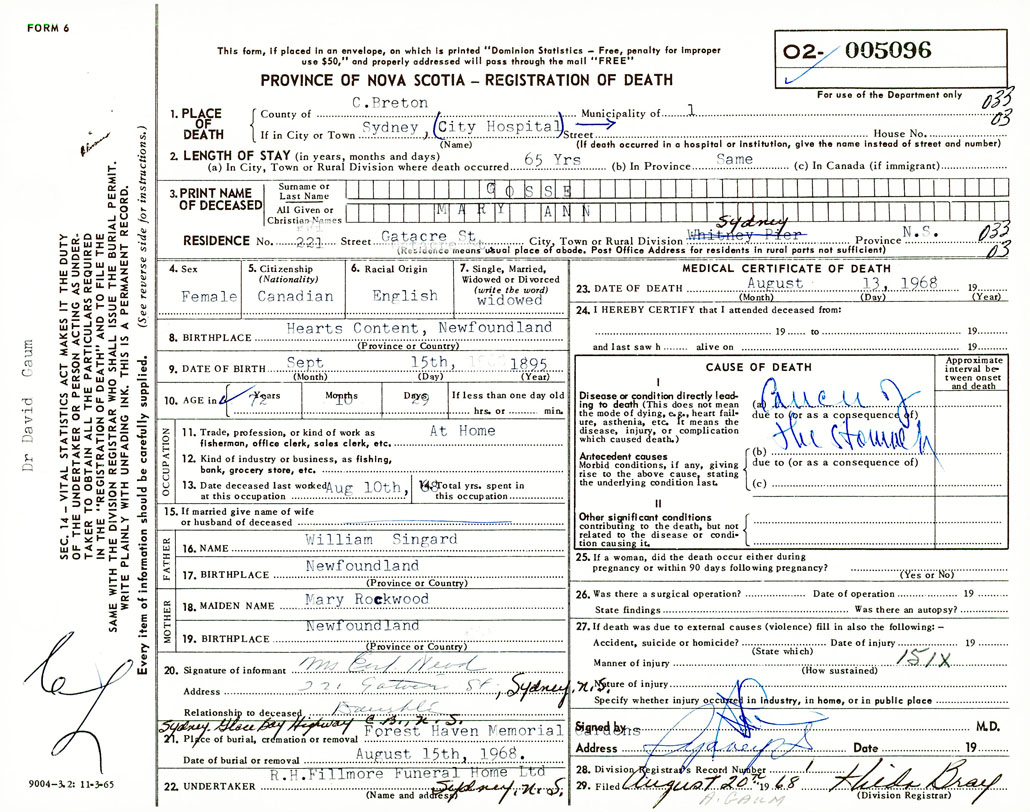 FORM 6
This form, if placed in an envelope, on which is printed "Dominion Statistics – Free, penalty for improper
use $50," and properly addressed will pass through the mail "FREE"
PROVINCE OF NOVA SCOTIA – REGISTRATION OF DEATH
O2- 005096
For use of the Department only
033
03
1. PLACE OF DEATH
County of C.Breton Municipality of 1
If in City or Town Sydney, (City Hospital) Street House No.
(Name) (If death occurred in a hospital or institution, give the name instead of street and number)
2. LENGTH OF STAY (in years, months and days)
(a) In City, Town or Rural Division where death occurred 65 Yrs (b) In Province Same (c) In Canada (if immigrant)
3. PRINT NAME OF DECEASED
Surname or Last Name GOSSE
All Given or Christian Names MARY ANN
Sydney
RESIDENCE No. 221 Street Gatacre St. City, Town or Rural Division Whitney Pier Province N.S. 033
03
(Residence means usual place of abode. Post Office Address for residents in rural parts not sufficient)
4. Sex
Female
5. Citizenship
(Nationality)
Canadian
6. Racial Origin
English
7. Single, Married,
Widowed or Divorced
(write the word)
widowed
8. BIRTHPLACE Hearts Content, Newfoundland
(Province or Country)
9. DATE OF BIRTH Sept 15th, 1895
(Month) (Day) (Year)
10. AGE in Years 72 Months 10 Days 29 If less than one day old
hrs. or min.
OCCUPATION
11. Trade, profession, or kind of work as
fisherman, office clerk, sales clerk, etc. At Home
12. Kind of industry or business, as fishing,
bank, grocery store, etc.
13. Date deceased last worked
at this occupation Aug 10th, 68
14. Total yrs. spent in
this occupation
15. If married give name of wife
or husband of deceased
FATHER
16. NAME William Singard
17. BIRTHPLACE Newfoundland
(Province or Country)
MOTHER
18. MAIDEN NAME Mary Rockwood
19. BIRTHPLACE Newfoundland
(Province or Country)
20. Signature of informant
Address 221 St, Sydney, N.S.
Relationship to deceased
Sydney Glace Bay Highway C.B., N.S.
21. Place of burial, cremation or removal Forest Haven Memorial Gardens
Date of burial or removal August 15th, 1968.
22. UNDERTAKER R.H.Fillmore Funeral Home Ltd
(Name and address) Sydney, N.S.
MEDICAL CERTIFICATE OF DEATH
23. DATE OF DEATH August 13, 1968 19
(Month) (Day) (Year)
24. I HEREBY CERTIFY that I attended deceased from:
19 to 19
and last saw h alive on 19
CAUSE OF DEATH
Approximate interval between onset and death
I
Disease or condition directly leading to death (This does not mean the mode of dying, e.g., heart failure, asthenia, etc. It means the disease, injury, or complication which caused death.)
(a) Cancer of
due to (or as a consequence of)
the stomach
Antecedent causes
Morbid conditions, if any, giving rise to the above cause, stating the underlying condition last.
(b)
due to (or as a consequence of)
(c)
II
Other significant conditions
contributing to the death, but not related to the disease or condition causing it.
25. If a woman, did the death occur either during
pregnancy or within 90 days following pregnancy?
(Yes or No)
26. Was there a surgical operation? Date of operation 19
State findings Was there an autopsy?
27. If death was due to external causes (violence) fill in also the following: –
Accident, suicide or homicide? Date of injury 19
(State which)
Manner of injury 151X
(How sustained)
Nature of injury
Specify whether injury occurred in industry, in home, or in public place
Signed by M.D.
Address Sydney Date 19
28. Division Registrar's Record Number
29. Filed August 20th 1968 Hilda Bray
(Division Registrar)
H. GAUM
Dr David Gaum
SEC. 14 – VITAL STATISTICS ACT MAKES IT THE DUTY
OF THE UNDERTAKER OR PERSON ACTING AS UNDER-
TAKER TO OBTAIN ALL THE PARTICULARS REQUIRED
IN THE "REGISTRATION OF DEATH" AND TO FILE THE
SAME WITH THE DIVISION REGISTRAR WHO SHALL ISSUE THE BURIAL PERMIT.
WRITE PLAINLY WITH UNFADING INK. THIS IS A PERMANENT RECORD.
Every item of information should be carefully supplied. (See reverse side for instructions.)
9004–3.2: 11-3-65